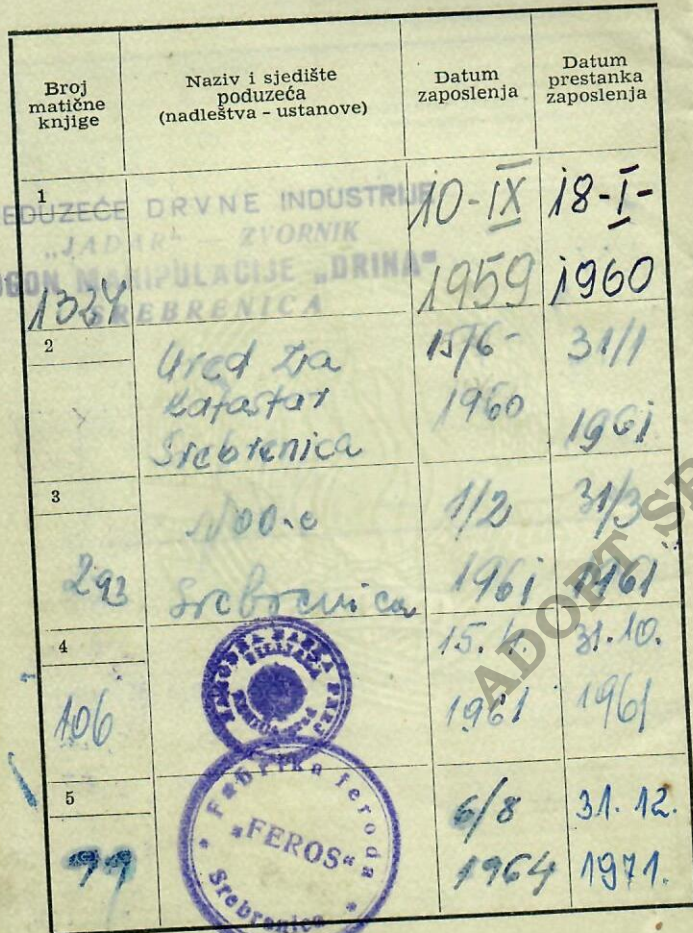 Broj
matične
knjige
Naziv i sjedište
poduzeća
(nadleštva - ustanove)
Datum
zaposlenja
Datum
prestanka
zaposlenja
1
EDUZEĆE DRVNE INDUSTRIJE
„JADAR“ — ZVORNIK
OGON MANIPULACIJE „DRINA“
SREBRENICA
1324
10-IX
1959
18-I-
1960
2
Ured za
katastar
Srebrenica
15/6-
1960
31/1
1961
3
293
NOO-e
Srebrenica
1/2
1961
31/3
1961
4
106
15. 4.
1961
31. 10.
1961
5
99
Fabrika feroda
„FEROS“
Srebrenica
6/8
1964
31. 12.
1971.
ADOPT